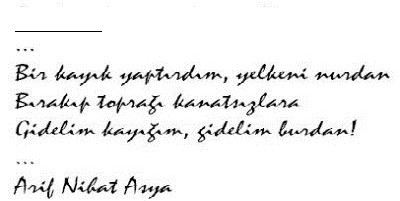 ...
Bir kayık yaptırdım, yelkeni nurdan
Bırakıp toprağı kanatsızlara
Gidelim kayığım, gidelim burdan!
...
Arif Nihat Asya